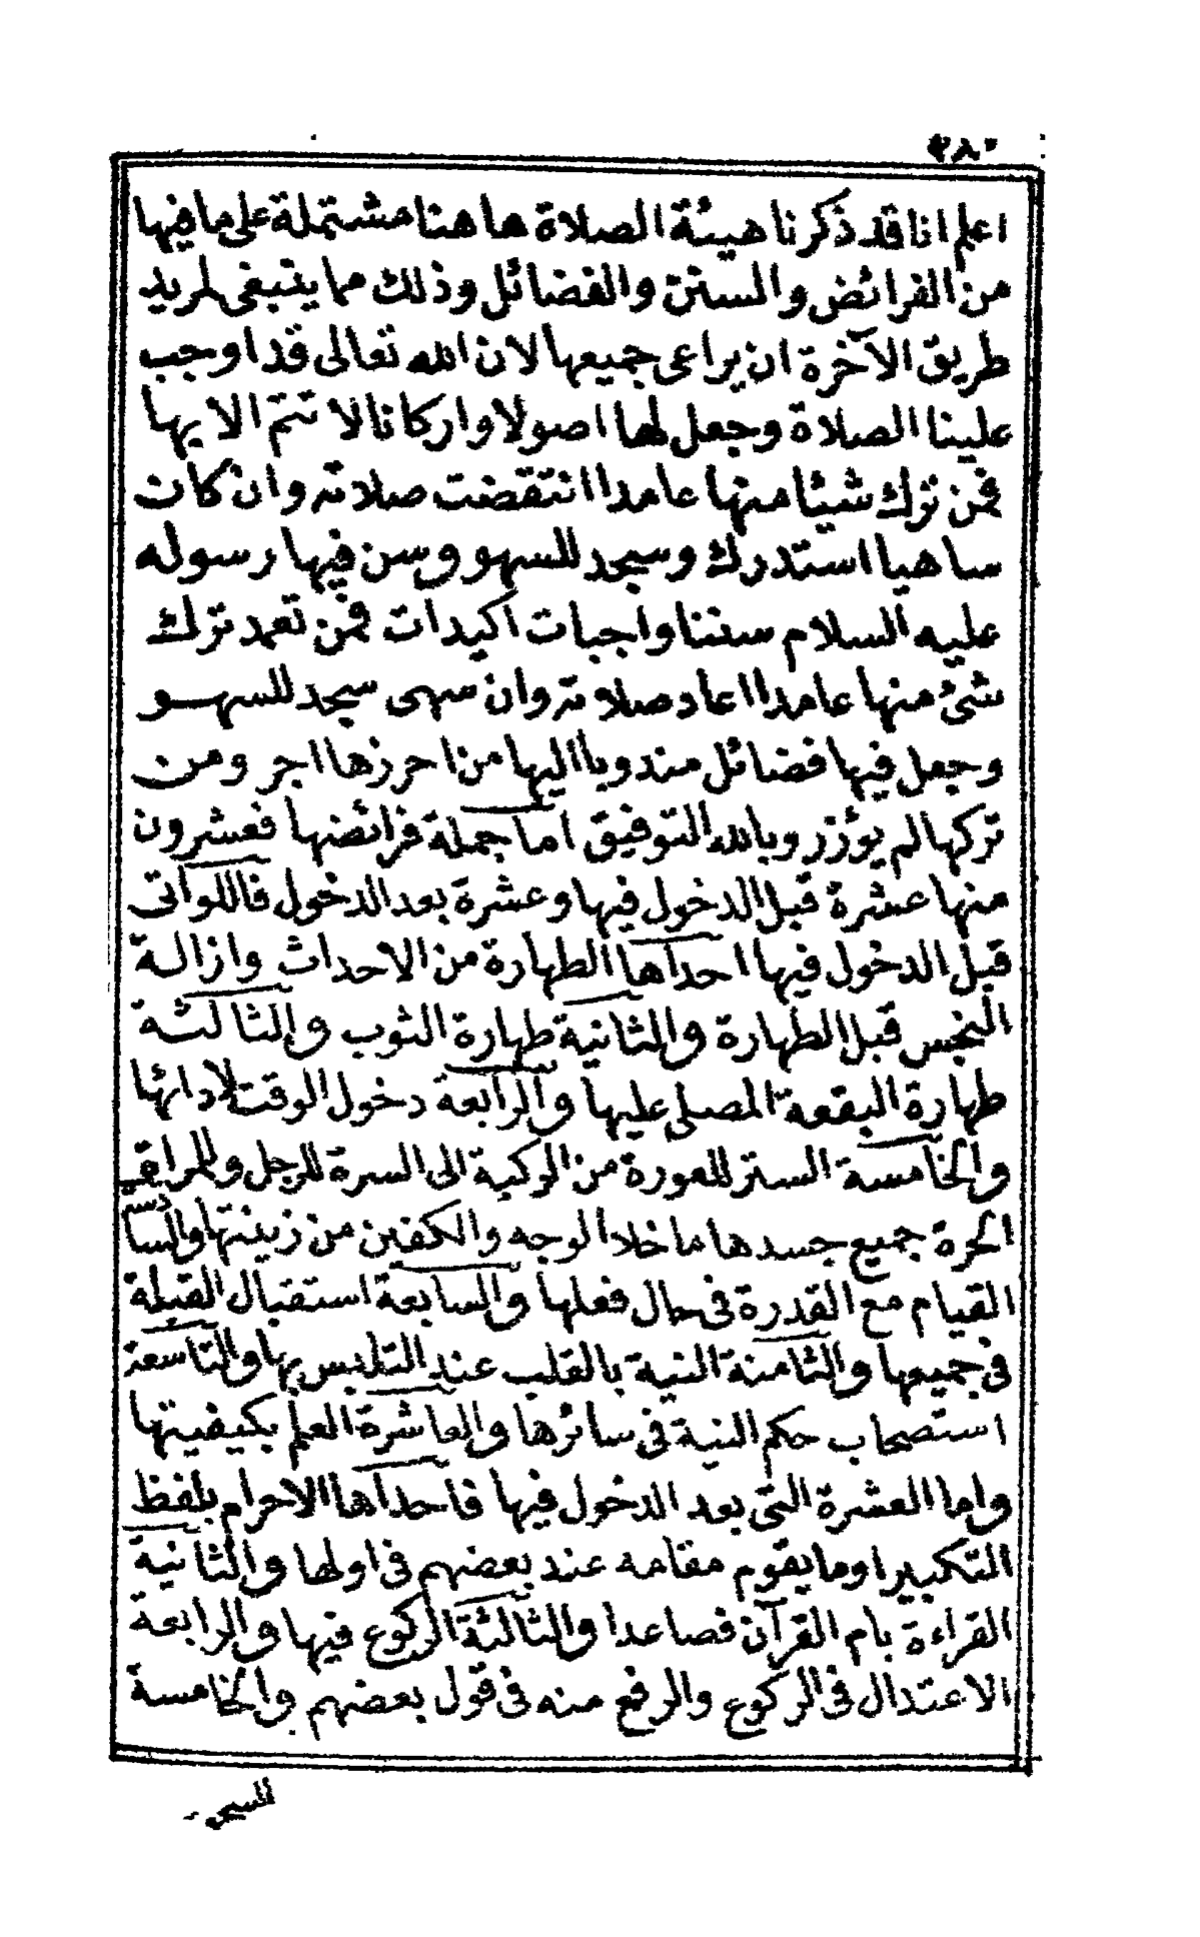 ٢٨٠
اعلم انا قد ذكرنا هيئة الصلاة ها هنا مشتملة على ما فيها
من الفرائض والسنن والفضائل وذلك مما ينبغى لمريد
طريق الآخرة ان يراعى جميعها لان الله تعالى قد اوجب
علينا الصلاة وجعل لها اصولا واركانا لا تتم الا بها
فمن ترك شيئا منها عامدا انتقضت صلاته وان كان
ساهيا استدرك وسجد للسهو وسن فيها رسوله
عليه السلام سننا واجبات اكيدات فمن تعمد ترك
شئ منها عامدا اعاد صلاته وان سهى سجد للسهو
وجعل فيها فضائل مندوبا اليها من احرزها اجر ومن
تركها لم يؤزر وبالله التوفيق اما جملة فرائضها فعشرون
منها عشرة قبل الدخول فيها وعشرة بعد الدخول فاللواتى
قبل الدخول فيها احداها الطهارة من الاحداث وازالة
النجس قبل الطهارة والثانية طهارة الثوب والثالثة
طهارة البقعة المصلى عليها والرابعة دخول الوقت لادائها
والخامسة الستر للعورة من الركبة الى السرة للرجل وللمراة
الحرة جميع جسدها ما خلا الوجه والكفين من زينتها والسادسة
القيام مع القدرة فى حال فعلها والسابعة استقبال القبلة
فى جميعها والثامنة النية بالقلب عند التلبس بها والتاسعة
استصحاب حكم النية فى سائرها والعاشرة العلم بكيفيتها
واما العشرة التى بعد الدخول فيها فاحداها الاحرام بلفظ
التكبير او ما يقوم مقامه عند بعضهم فى اولها والثانية
القراءة بام القرآن فصاعدا والثالثة الركوع فيها والرابعة
الاعتدال فى الركوع والرفع منه فى قول بعضهم والخامسة